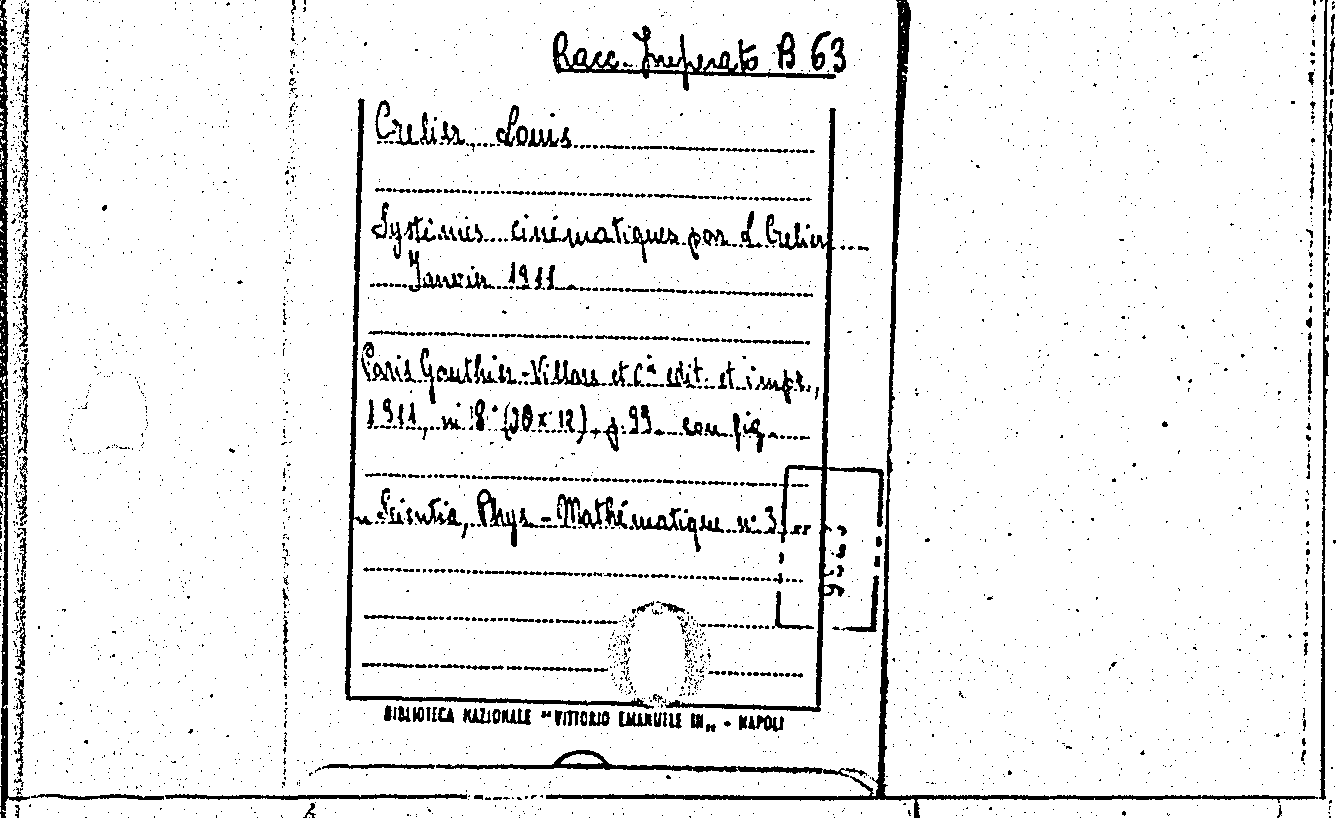 Racc. Imperato B 63
Crelier Louis
Systèmes cinématiques par L. Crelier
Janvier 1911
Paris Gauthier-Villars et Cie edit. et impr.,
1911, in 8° (20 x 12), p. 99. con fig.
Scientia, Phys - Mathématique n° 3
BIBLIOTECA NAZIONALE "VITTORIO EMANUELE III" - NAPOLI